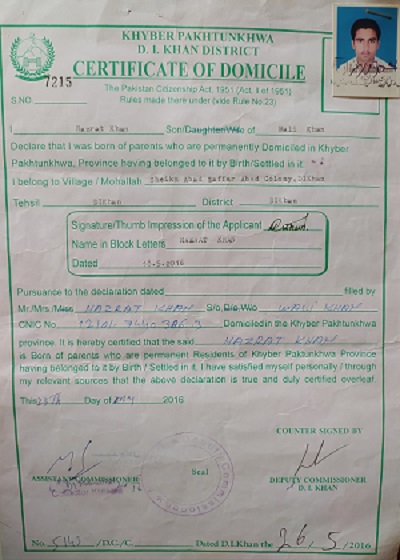 KHYBER PAKHTUNKHWA
D. I. KHAN DISTRICT
CERTIFICATE OF DOMICILE
7215
The Pakistan Citizenship Act, 1951 (Act. II of 1951)
S.NO
Rules made there under (vide Rule No.23)
I Hazrat Khan Son/Daughter/Wife of Wali Khan
Declare that I was born of parents who are permanently Domiciled in Khyber
Pakhtunkhwa, Province having belonged to it by Birth/Settled in it.
I belong to Village / Mohallah Sheikh Abad Gaffar Abad Colony, DIKhan
Tehsil DIKhan District DIKhan
Signature/Thumb Impression of the Applicant
Name in Block Letters HAZRAT KHAN
Dated -5-2016
Pursuance to the declaration dated filled by
Mr./Mrs./Miss HAZRAT KHAN S/o, D/o W/o WALI KHAN
CNIC No. Domiciled in the Khyber Pakhtunkhwa
province. It is hereby certified that the said HAZRAT KHAN
is Born of parents who are permanent Residents of Khyber Paktunkhwa Province
having belonged to it by Birth / Settled in it. I have satisfied myself personally / through
my relevant sources that the above declaration is true and duly certified overleaf.
This 25th Day of May 2016
COUNTER SIGNED BY
ASSISTANT COMMISSIONER
Seal
DEPUTY COMMISSIONER
D. I. KHAN
No. /D.C/C. Dated D.I.Khan the 26/5/2016